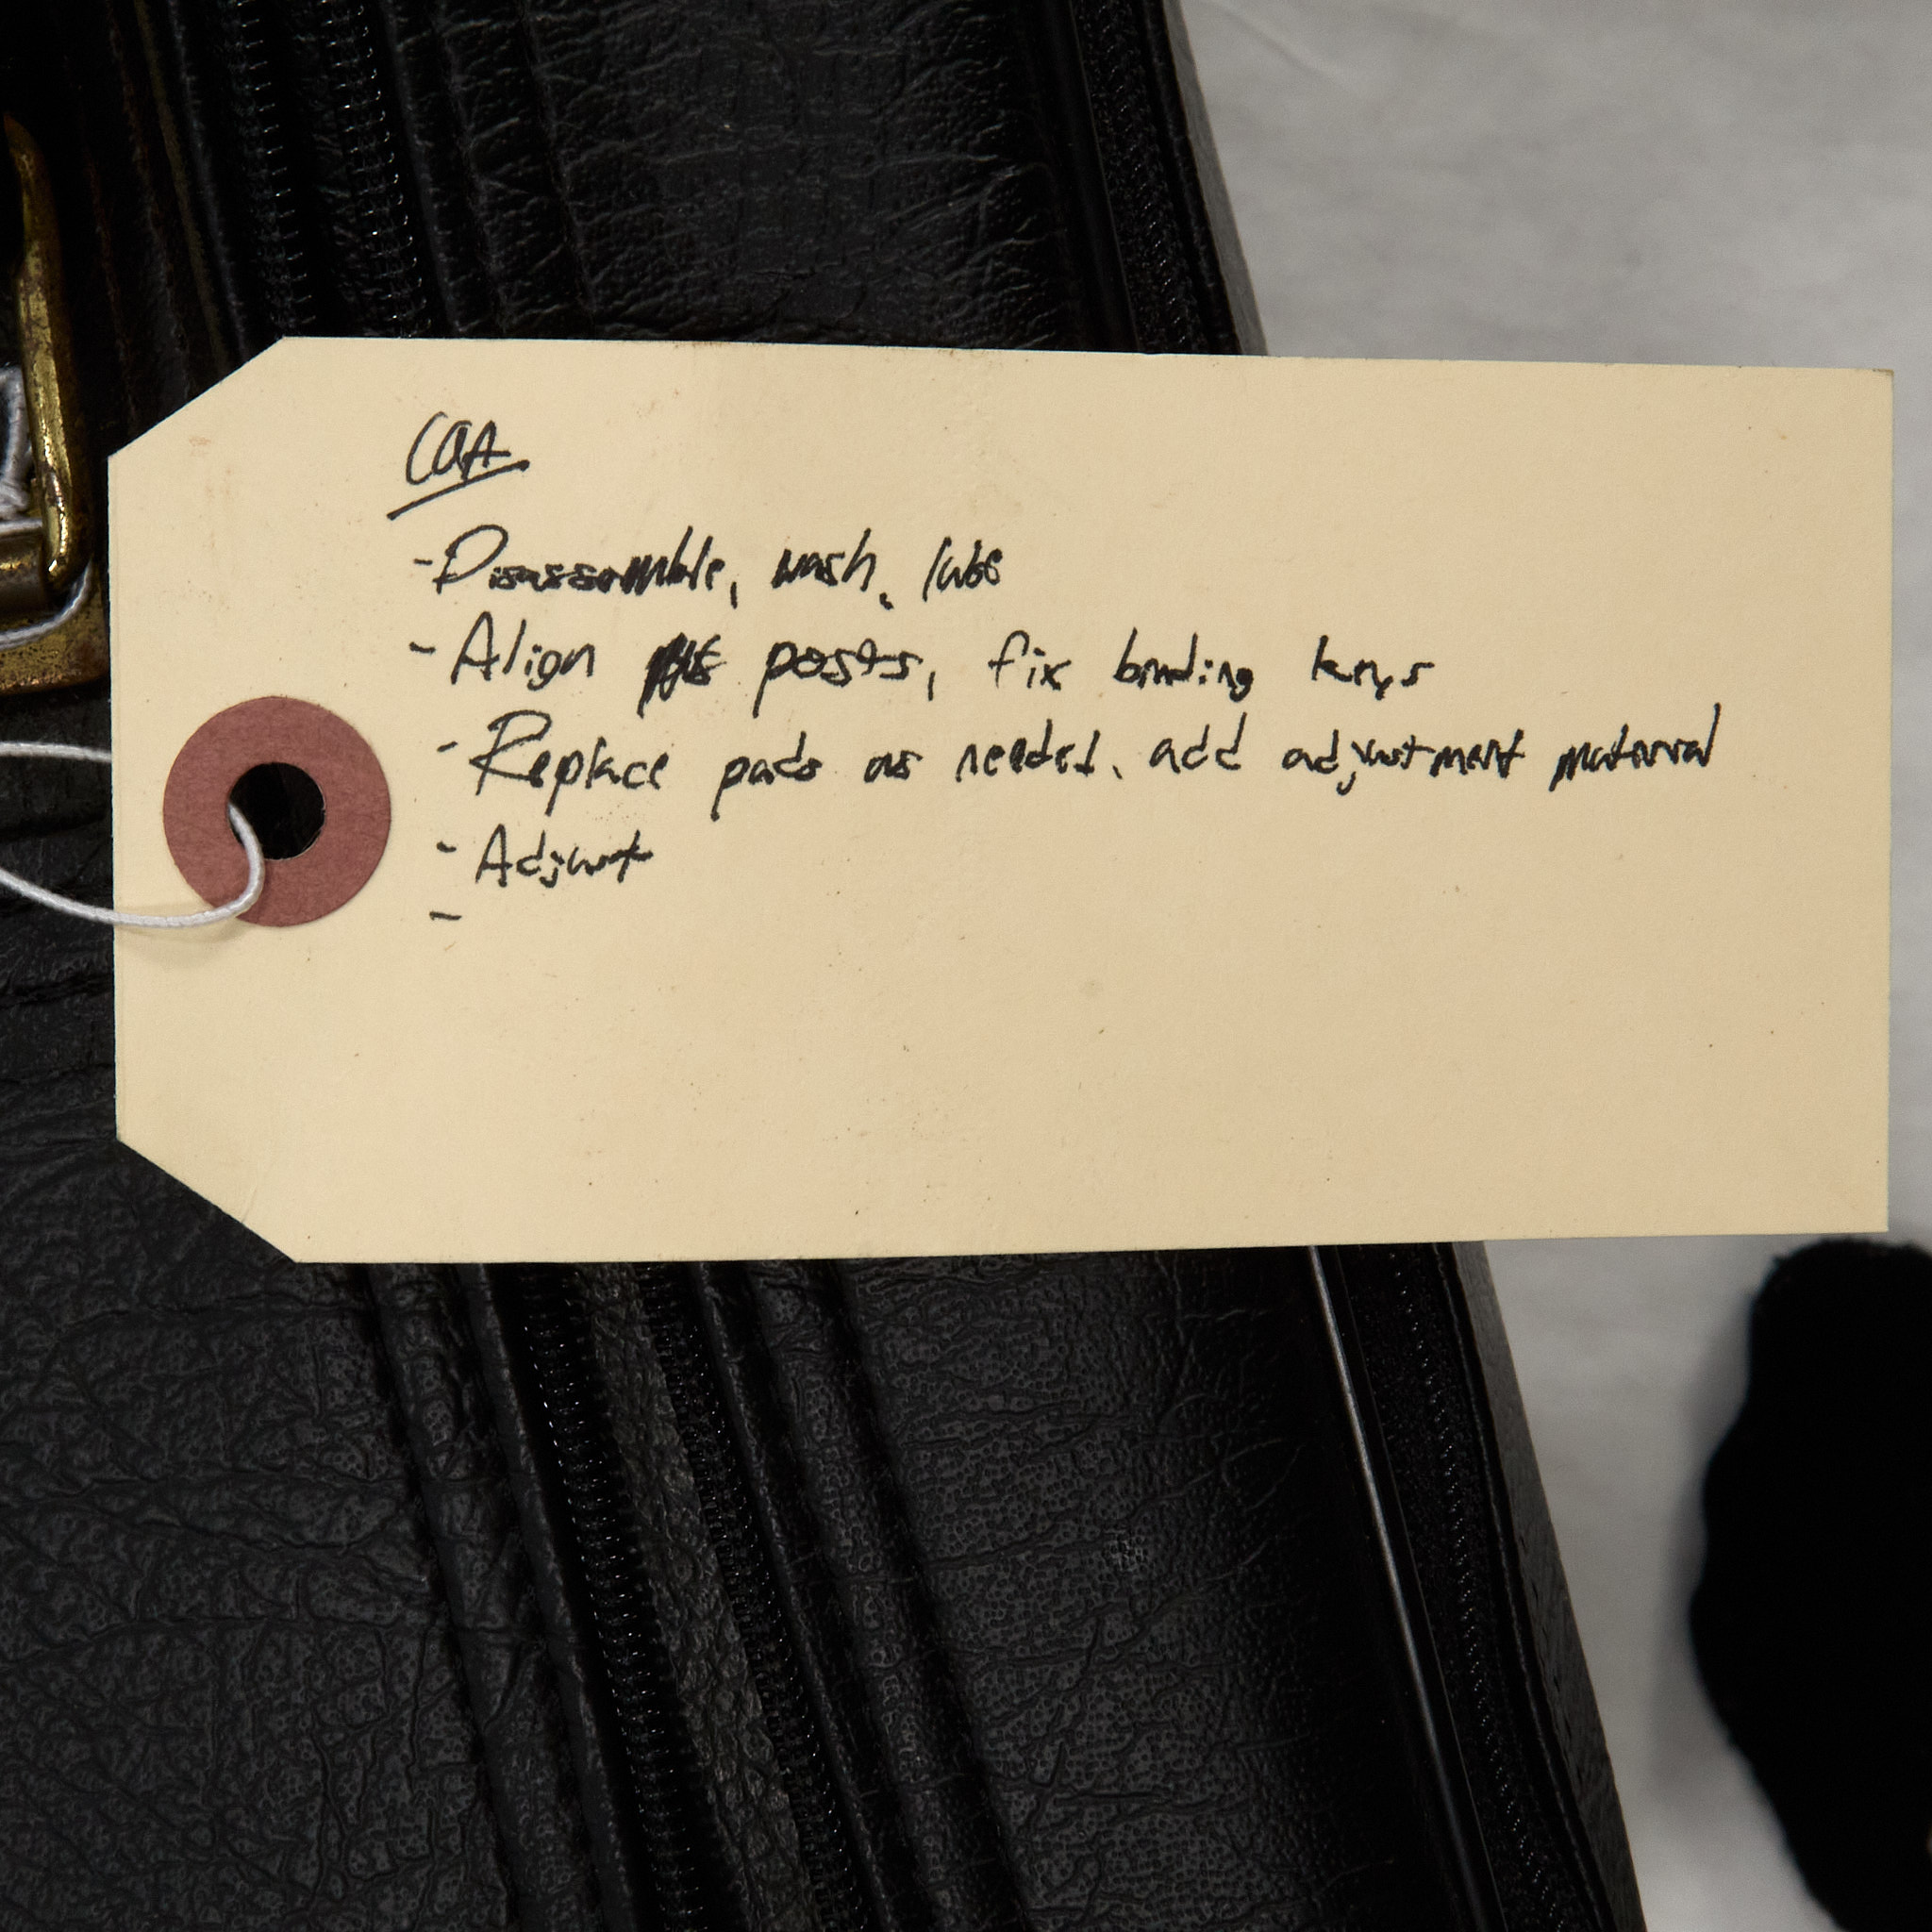 COA
- Disassemble, wash, lube
- Align posts, fix binding keys
- Replace pads as needed, add adjustment material
- Adjust
-